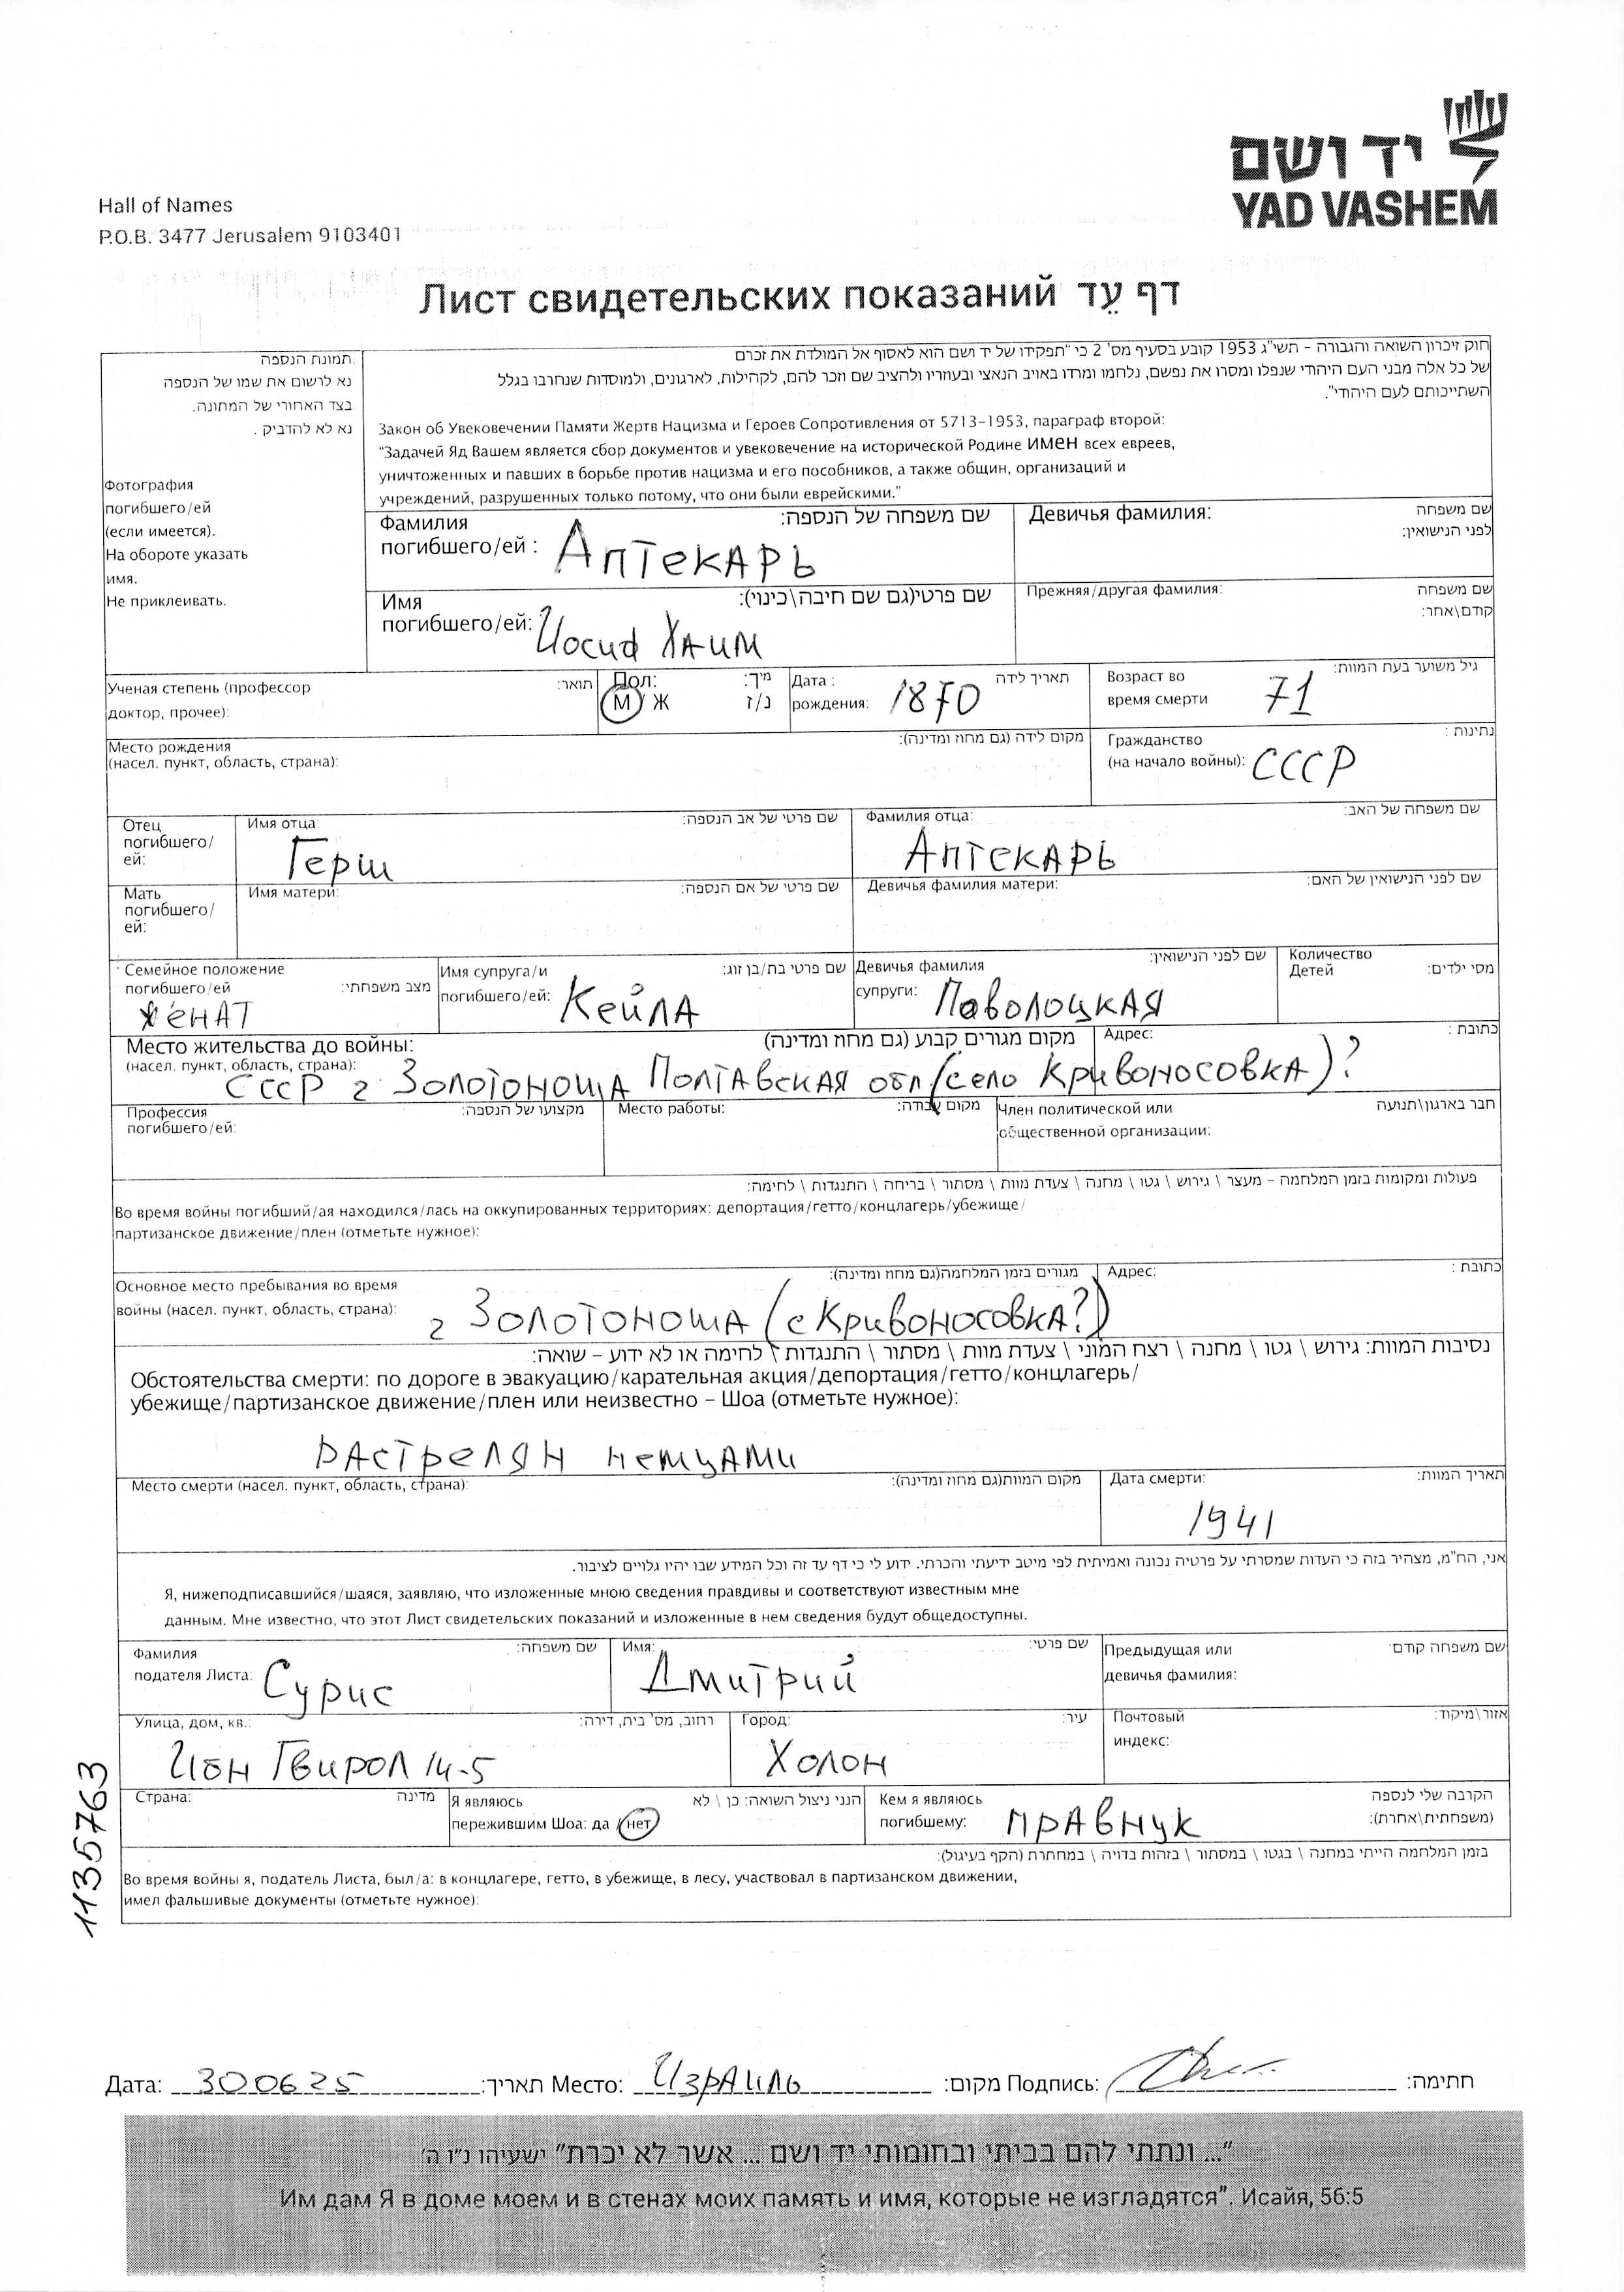 יד ושם
YAD VASHEM
Hall of Names
P.O.B. 3477 Jerusalem 9103401
Лист свидетельских показаний דף עֵד
תמונת הנספה
נא לרשום את שמו של הנספה
בצד האחורי של המתונה.
נא לא להדביק .
Фотография
погибшего/ей
(если имеется).
На обороте указать
имя.
Не приклеивать.
חוק זיכרון השואה והגבורה – תשי"ג 1953 קובע בסעיף מס' 2 כי "תפקידו של יד ושם הוא לאסוף אל המולדת את זכרם
של כל אלה מבני העם היהודי שנפלו ומסרו את נפשם, נלחמו ומרדו באויב הנאצי ובעוזריו ולהציב שם וזכר להם, לקהילות, לארגונים, ולמוסדות שנחרבו בגלל
השתייכותם לעם היהודי".
Закон об Увековечении Памяти Жертв Нацизма и Героев Сопротивления от 5713-1953, параграф второй:
"Задачей Яд Вашем является сбор документов и увековечение на исторической Родине имен всех евреев,
уничтоженных и павших в борьбе против нацизма и его пособников, а также общин, организаций и
учреждений, разрушенных только потому, что они были еврейскими."
Фамилия שם משפחה של הנספה:
погибшего/ей : Аптекарь
Девичья фамилия: שם משפחה
לפני הנישואין:
Имя שם פרטי(גם שם חיבה\כינוי):
погибшего/ей: Иосиф Хаим
Прежняя/другая фамилия: שם משפחה
קודם\אחר:
Ученая степень (профессор תואר:
доктор, прочее):
Пол: מין:
М / Ж ז/נ
Дата : תאריך לידה
рождения: 1870
Возраст во גיל משוער בעת המוות:
время смерти 71
Место рождения מקום לידה (גם מחוז ומדינה):
(насел. пункт, область, страна):
Гражданство נתינות :
(на начало войны): СССР
Отец
погибшего/
ей:
Имя отца: שם פרטי של אב הנספה:
Герш
Фамилия отца: שם משפחה של האב:
Аптекарь
Мать
погибшего/
ей:
Имя матери: שם פרטי של אם הנספה:
Девичья фамилия матери: שם לפני הנישואין של האם:
Семейное положение
погибшего/ей מצב משפחתי:
женат
Имя супруга/и שם פרטי בת/בן זוג:
погибшего/ей: Кейла
Девичья фамилия שם לפני הנישואין:
супруги: Паволоцкая
Количество
Детей מסי ילדים:
Место жительства до войны: מקום מגורים קבוע (גם מחוז ומדינה) Адрес: כתובת :
(насел. пункт, область, страна):
СССР г Золотоноша Полтавская обл (село Кривоносовка)?
Профессия מקצועו של הנספה:
погибшего/ей:
Место работы: מקום עבודה:
Член политической или חבר בארגון\תנועה
общественной организации:
פעולות ומקומות בזמן המלחמה – מעצר \ גירוש \ גטו \ מחנה \ צעדת מוות \ מסתור \ בריחה \ התנגדות \ לחימה:
Во время войны погибший/ая находился/лась на оккупированных территориях: депортация/гетто/концлагерь/убежище/
партизанское движение/плен (отметьте нужное):
Основное место пребывания во время מגורים בזמן המלחמה(גם מחוז ומדינה): Адрес: כתובת :
войны (насел. пункт, область, страна):
г Золотоноша (с Кривоносовка?)
נסיבות המוות: גירוש \ גטו \ מחנה \ רצח המוני \ צעדת מוות \ מסתור \ התנגדות \ לחימה או לא ידוע – שואה:
Обстоятельства смерти: по дороге в эвакуацию/карательная акция/депортация/гетто/концлагерь/
убежище/партизанское движение/плен или неизвестно – Шоа (отметьте нужное):
растрелян немцами
Место смерти (насел. пункт, область, страна): מקום המוות(גם מחוז ומדינה):
Дата смерти: תאריך המוות:
1941
אני, הח"מ, מצהיר בזה כי העדות שמסרתי על פרטיה נכונה ואמיתית לפי מיטב ידיעתי והכרתי. ידוע לי כי דף עד זה וכל המידע שבו יהיו גלויים לציבור.
Я, нижеподписавшийся/шаяся, заявляю, что изложенные мною сведения правдивы и соответствуют известным мне
данным. Мне известно, что этот Лист свидетельских показаний и изложенные в нем сведения будут общедоступны.
Фамилия שם משפחה:
подателя Листа: Сурис
Имя: שם פרטי:
Дмитрий
Предыдущая или שם משפחה קודם:
девичья фамилия:
Улица, дом, кв.: רחוב, מס' בית, דירה:
Ибн Гвирол 14-5
Город: עיר:
Холон
Почтовый אזור\מיקוד:
индекс:
Страна: מדינה
Я являюсь הנני ניצול השואה: כן \ לא
пережившим Шоа: да / нет
Кем я являюсь הקרבה שלי לנספה
погибшему: правнук (משפחתית\אחרת):
בזמן המלחמה הייתי במחנה \ בגטו \ במסתור \ בזהות בדויה \ במחתרת (הקף בעיגול):
Во время войны я, податель Листа, был/а: в концлагере, гетто, в убежище, в лесу, участвовал в партизанском движении,
имел фальшивые документы (отметьте нужное):
1135763
Дата: 300625 תאריך: Место: Израиль מקום: Подпись: חתימה:
"... ונתתי להם בביתי ובחומותי יד ושם ... אשר לא יכרת" ישעיהו נ"ו ה'
Им дам Я в доме моем и в стенах моих память и имя, которые не изгладятся". Исайя, 56:5